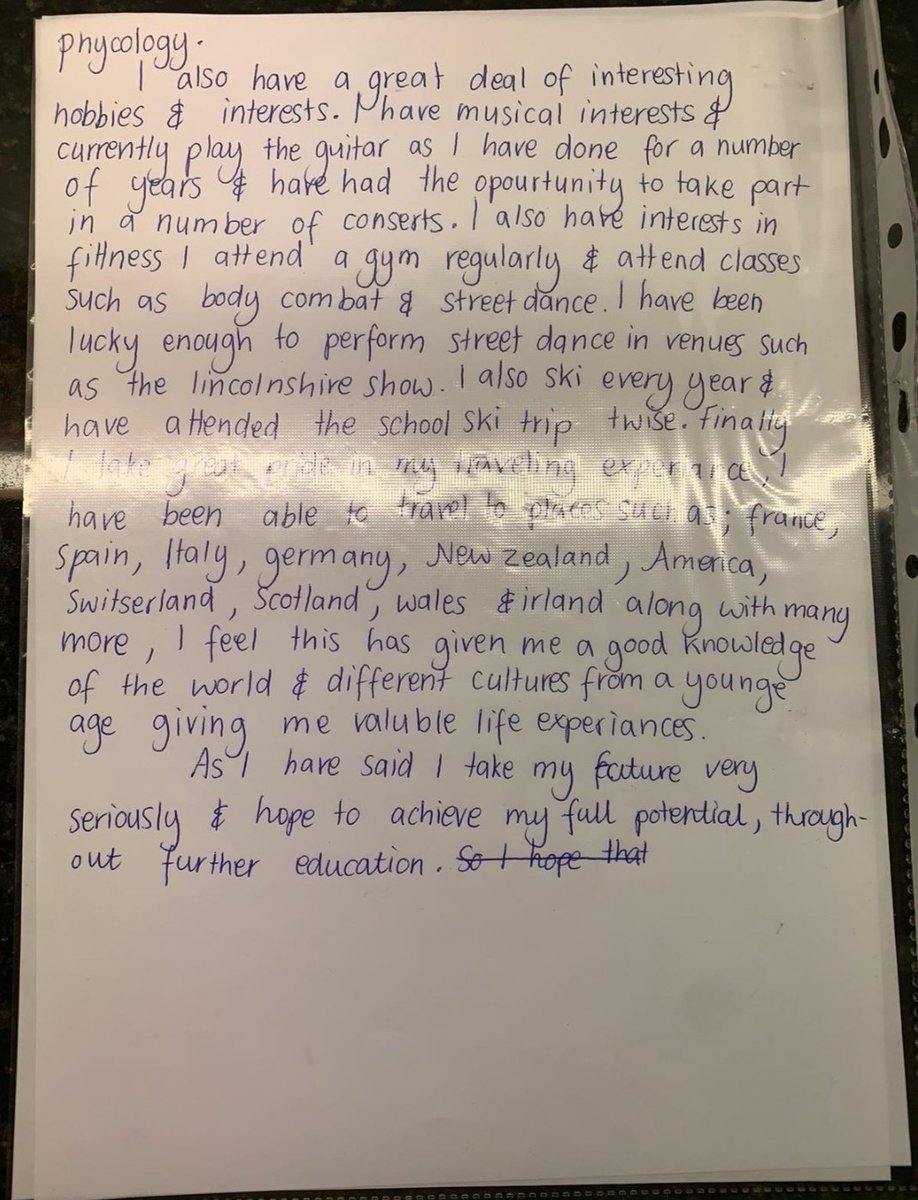 phycology.
I also have a great deal of interesting
hobbies & interests. I have musical interests &
currently play the guitar as I have done for a number
of years & have had the opourtunity to take part
in a number of conserts. I also have interests in
fittness I attend a gym regularly & attend classes
such as body combat & street dance. I have been
lucky enough to perform street dance in venues such
as the lincolnshire show. I also ski every year &
have attended the school ski trip twise. finally
I take great pride in my traveling experiance, I
have been able to travel to places such as; france,
Spain, Italy, germany, New zealand, America,
Switserland, Scotland, wales & irland along with many
more, I feel this has given me a good knowledge
of the world & different cultures from a younge
age giving me valuble life experiances.
As I have said I take my future very
seriously & hope to achieve my full potential, through-
out further education. So I hope that